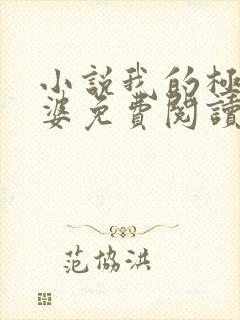 小說我的極
婆免費閱讀
范協洪